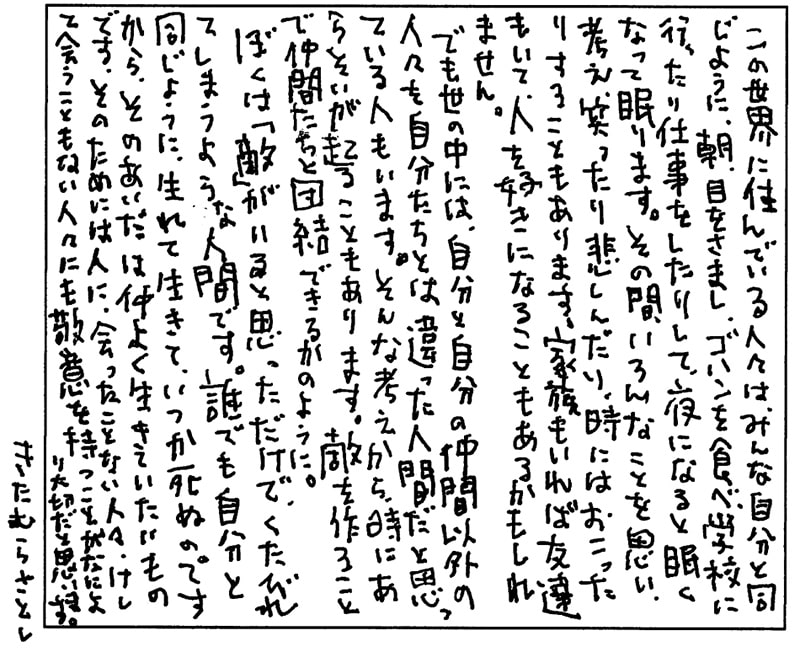 この世界に住んでいる人々は、みんな自分と同
じように、朝、目をさまし、ゴハンを食べ、学校に
行ったり仕事をしたりして、夜になると眠く
なって眠ります。その間、いろんなことを思い、
考え、笑ったり悲しんだり、時にはおこった
りすることもあります。家族もいれば友達
もいて、人を好きになることもあるかもしれ
ません。
でも世の中には、自分と自分の仲間以外の
人々を自分たちとは違った人間だと思っ
ている人もいます。そんな考えから、時にあ
らそいが起ることもあります。敵を作ること
で仲間たちと団結できるかのように。
ぼくは「敵」がいると思っただけで、くたびれ
てしまうような人間です。誰でも自分と
同じように、生れて生きて、いつか死ぬのです
から、そのあいだは仲よく生きていたいもの
です。そのためには人に、会ったことない人々、けし
て会うこともない人々にも敬意を持つことがなによ
り大切だと思います。
きたむらさとし